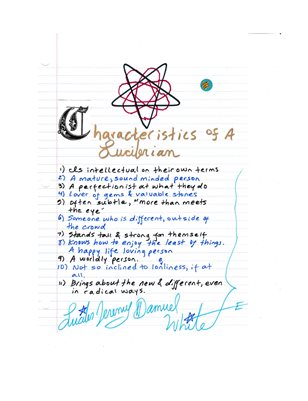 Characteristics of A
Luciferian
1) Is intellectual on their own terms
2) A mature, sound minded person
3) A perfectionist at what they do
4) Lover of gems & valuable stones
5) often subtle, "more than meets
the eye"
6) Someone who is different, outside of
the crowd
7) Stands tall & strong for themself
8) Knows how to enjoy the least by things.
A happy life loving person
9) A worldly person.
10) Not so inclined to lonliness, if at
all.
11) Brings about the new & different, even
in radical ways.
Jeremy Damuel
White